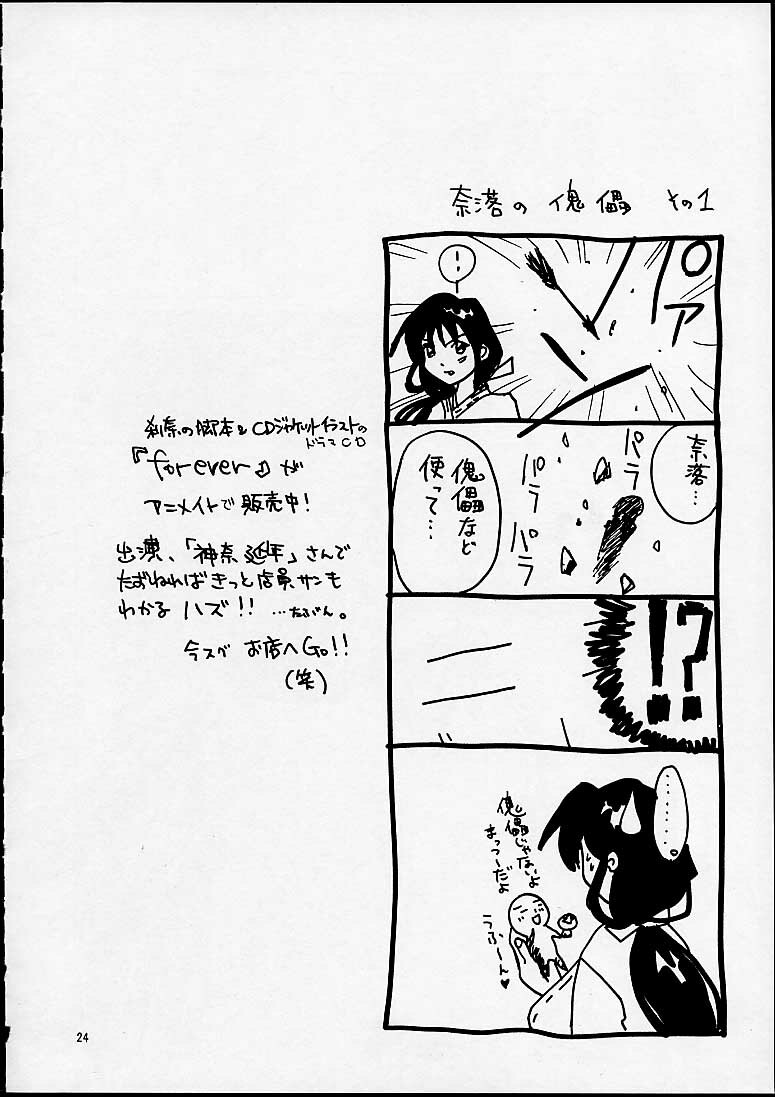 奈落の傀儡 その1
パァ
!
奈落…
パラ
パラ
パラ
傀儡など
使って…
!?
………
傀儡じゃないよ
まっつーだよ
うふーん♥
刹奈の脚本&CDジャケットイラストの
ドラマCD
『forever』が
アニメイトで販売中!
出演、「神奈延年」さんで
たずねればきっと店員サンも
わかるハズ!! …たぶん。
今スグ お店へGo!!
(笑)
24